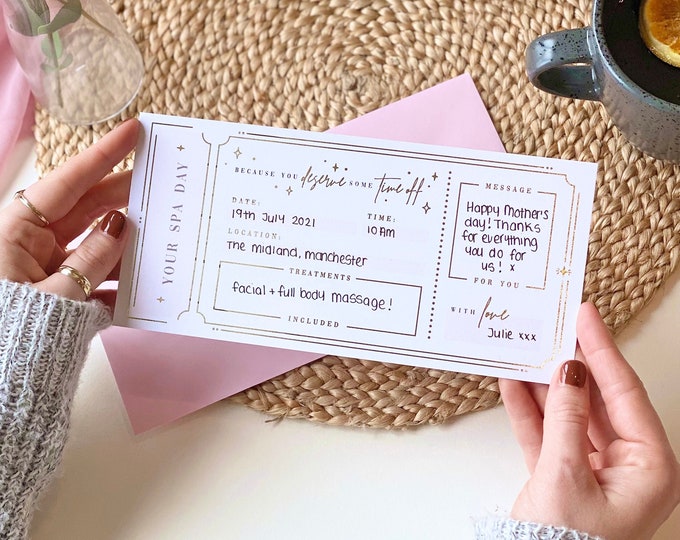 YOUR SPA DAY
BECAUSE YOU deserve SOME time off
DATE:
19th July 2021
TIME:
10 Am
LOCATION:
The midland, manchester
TREATMENTS
facial + full body massage!
INCLUDED
MESSAGE
Happy Mother's
day! Thanks
for everything
you do for
us! x
FOR YOU
WITH love
Julie xxx